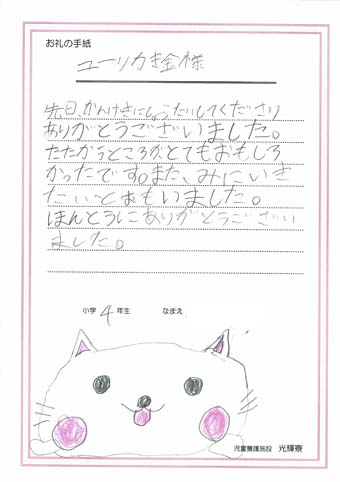 お礼の手紙
ユーリカ基金様
先日、かんげきにしょうたいしてくださり
ありがとうございました。
たたかうところがとてもおもしろ
かったです。また、みにいき
たいとおもいました。
ほんとうにありがとうござい
ました。
小学 4 年生 なまえ
児童養護施設 光輝寮